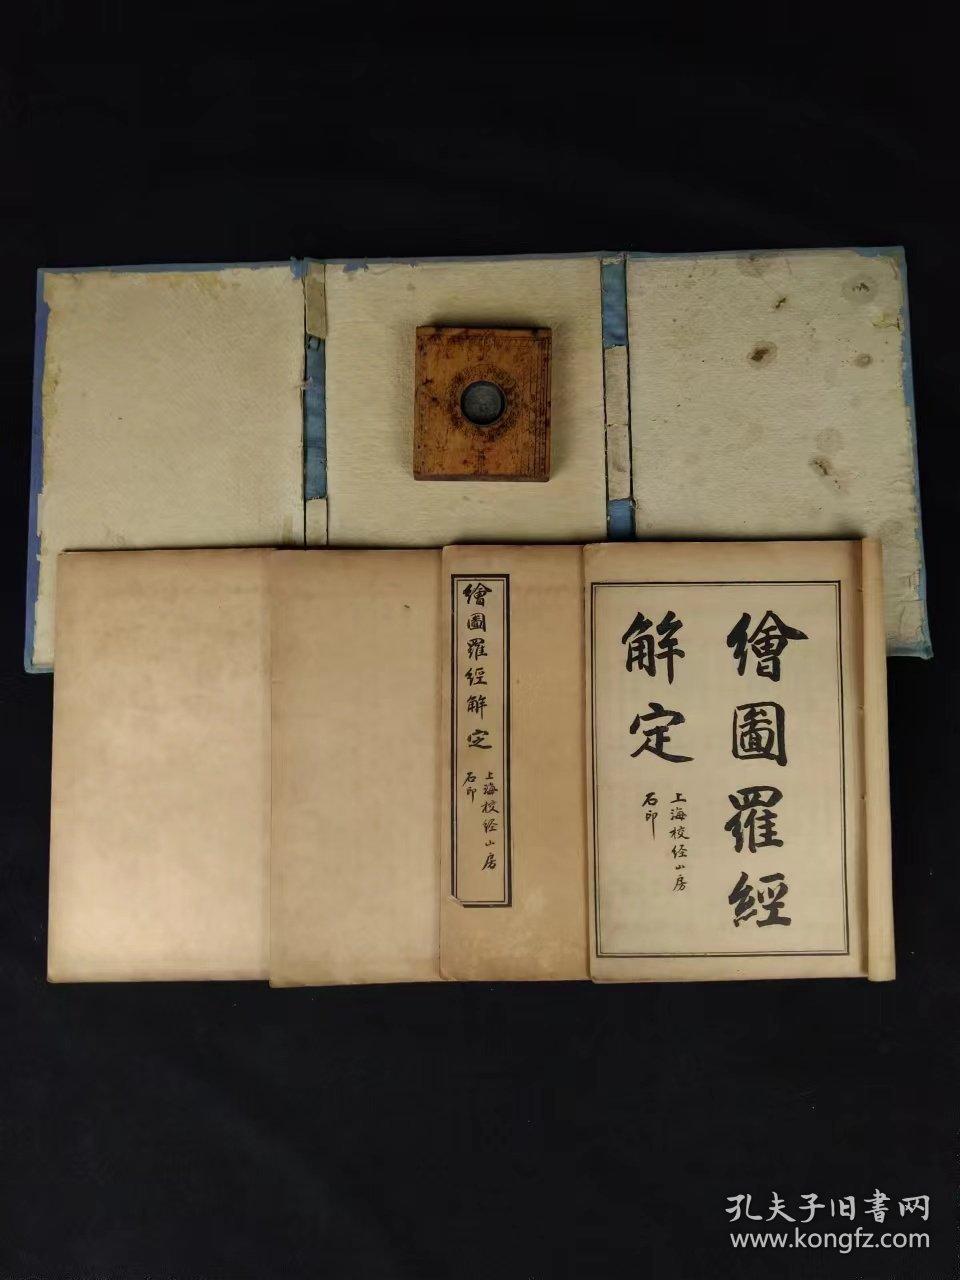 繪圖羅經解定
上海校经山房
石印
繪圖羅經
解定
上海校经山房
石印
孔夫子旧書网
www.kongfz.com